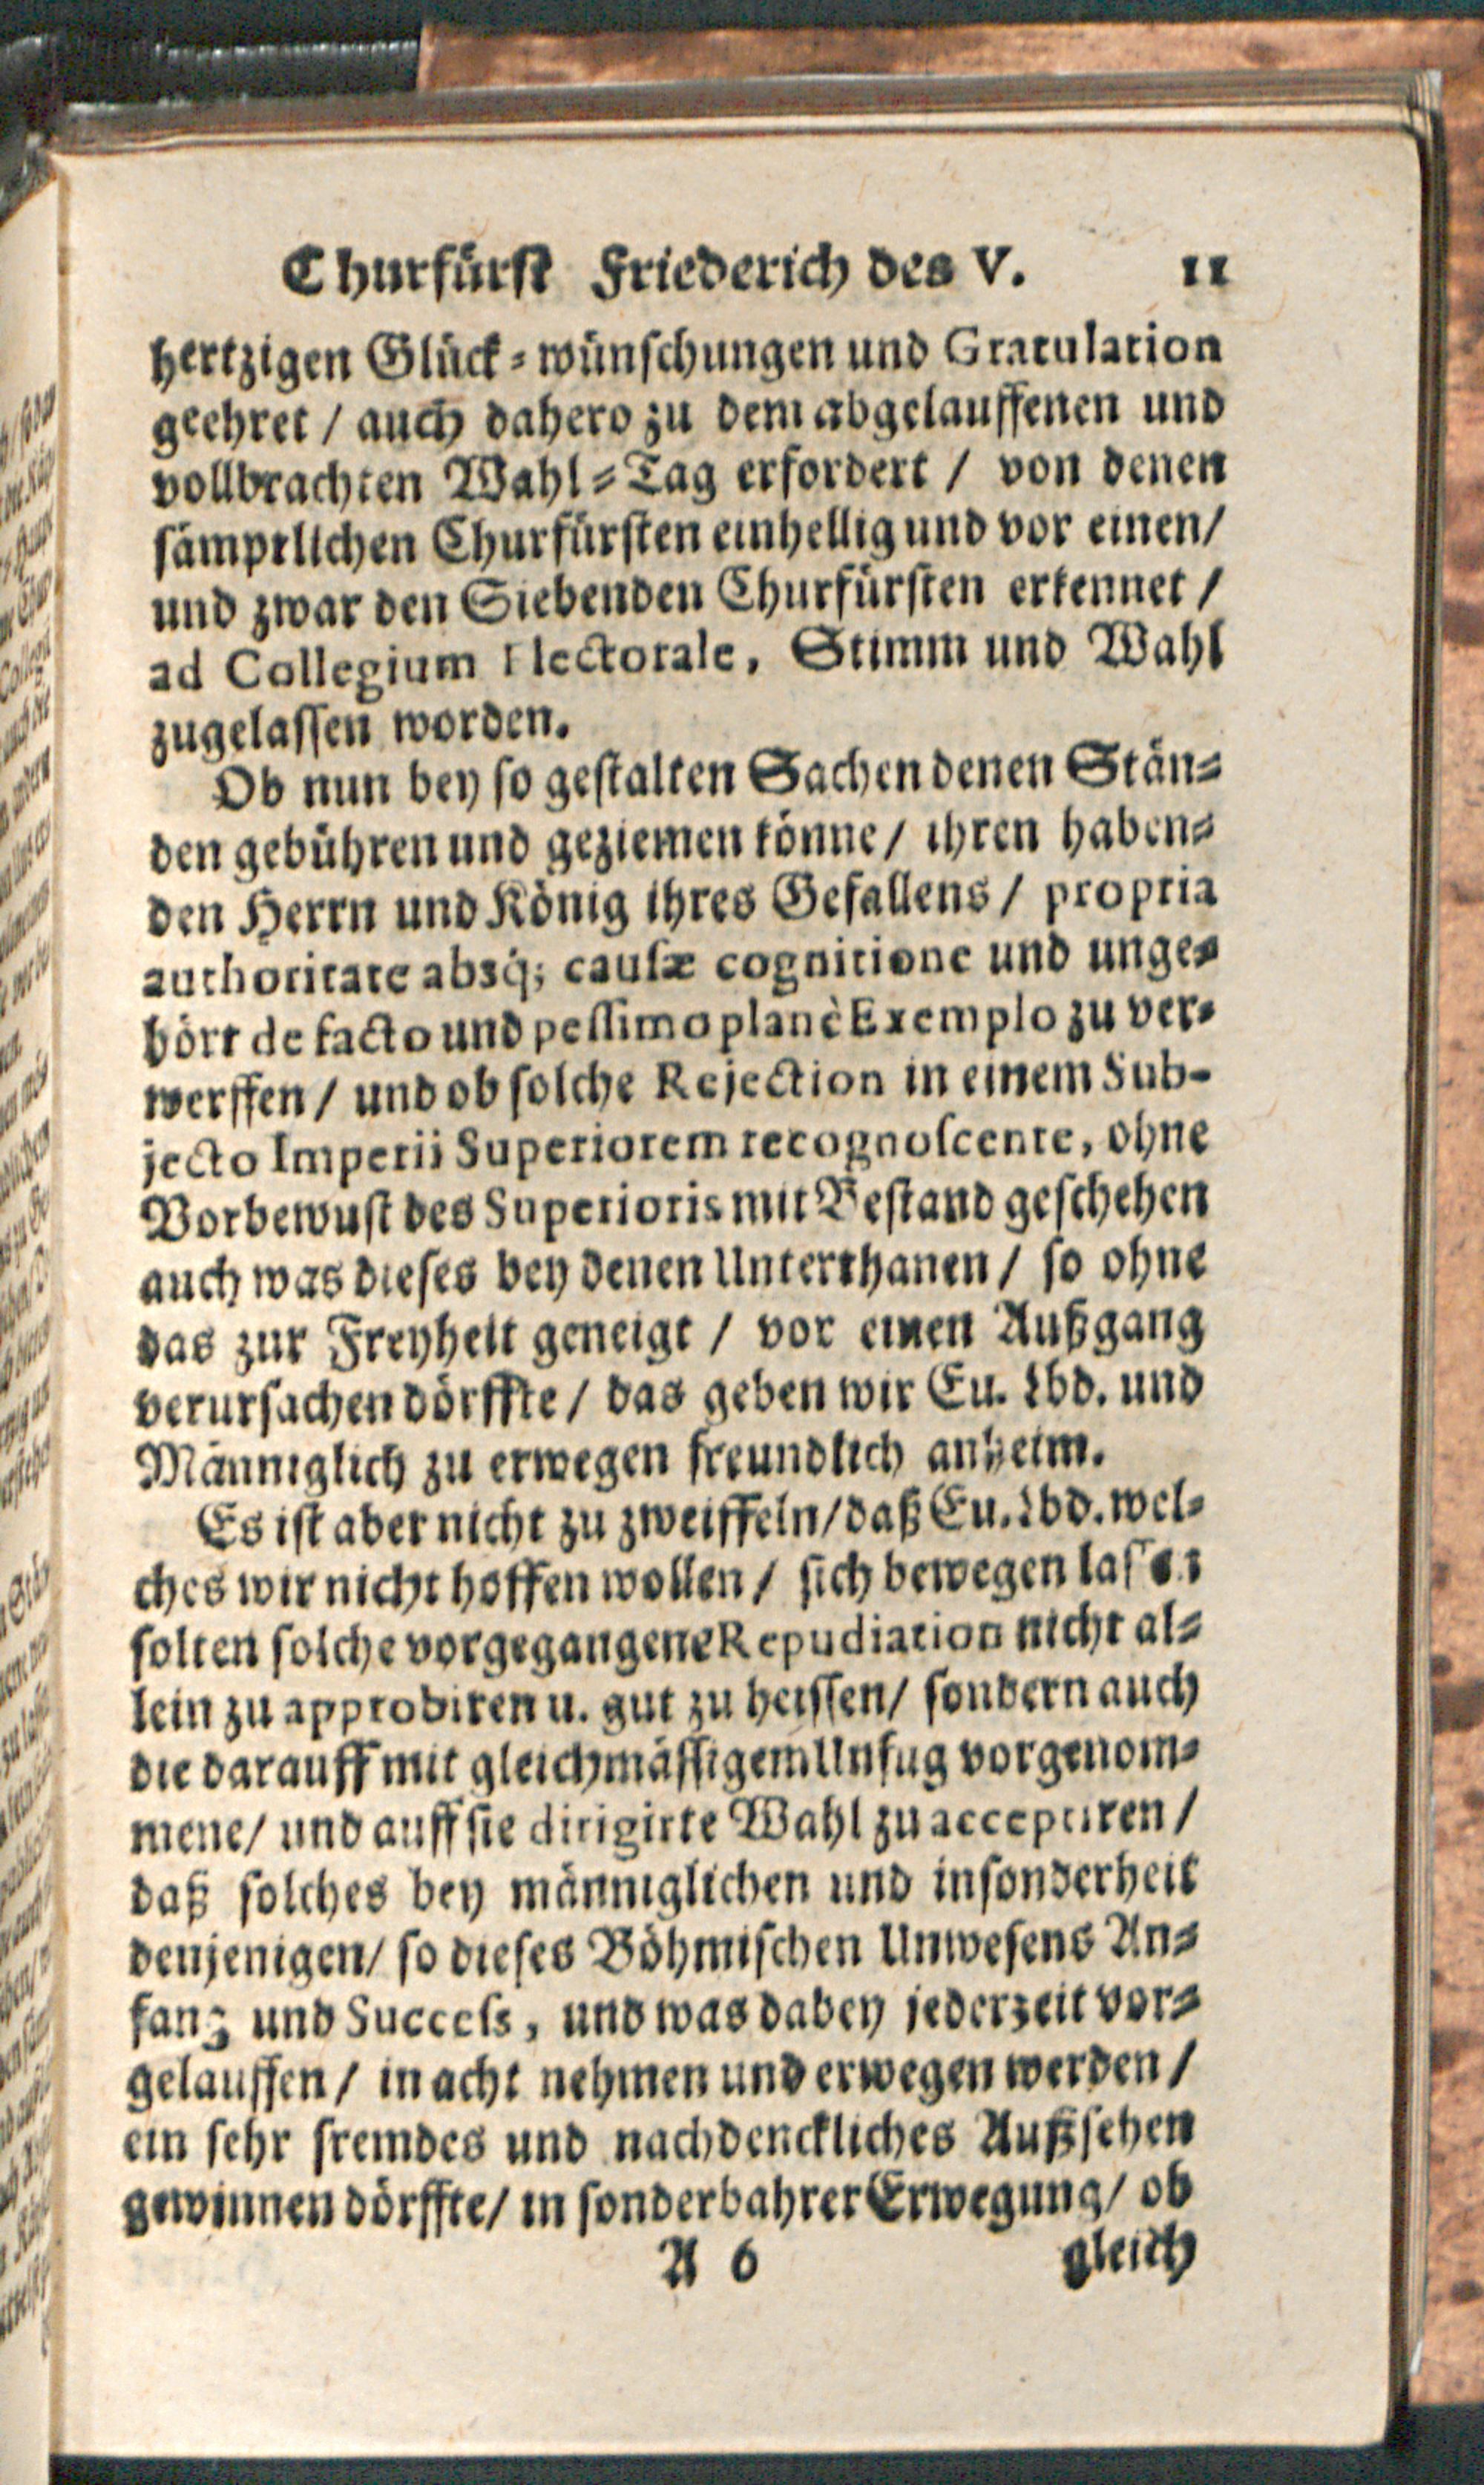 Churfürst Friederich des V. 11
hertzigen Glück-wünschungen und Gratulation
geehret / auch dahero zu dem abgelauffenen und
vollbrachten Wahl-Tag erfordert / von denen
sämptlichen Churfürsten einhellig und vor einen/
und zwar den Siebenden Churfürsten erkennet /
ad Collegium Electorale, Stimm und Wahl
zugelassen worden.
Ob nun bey so gestalten Sachen denen Stän-
den gebühren und geziemen könne / ihren haben-
den Herrn und König ihres Gefallens / propria
authoritate absq; causæ cognitione und unge-
hört de facto und pessimo planè Exemplo zu ver-
werffen / und ob solche Rejection in einem Sub-
jecto Imperii Superiorem recognoscente, ohne
Vorbewust des Superioris mit Bestand geschehen
auch was dieses bey denen Unterthanen / so ohne
das zur Freyheit geneigt / vor einen Außgang
verursachen dörffte / das geben wir Eu. Lbd. und
Männiglich zu erwegen freundlich anheim.
Es ist aber nicht zu zweiffeln / daß Eu. Lbd. wel-
ches wir nicht hoffen wollen / sich bewegen lassen
solten solche vorgegangene Repudiation nicht al-
lein zu approbiren u. gut zu heissen / sondern auch
die darauff mit gleichmässigem Unfug vorgenom-
mene / und auff sie dirigirte Wahl zu acceptiren /
daß solches bey männiglichen und insonderheit
denjenigen / so dieses Böhmischen Unwesens An-
fang und Success, und was dabey jederzeit vor-
gelauffen / in acht nehmen und erwegen werden /
ein sehr fremdes und nachdenckliches Außsehen
gewinnen dörffte / in sonderbahrer Erwegung / ob
A 6 gleich